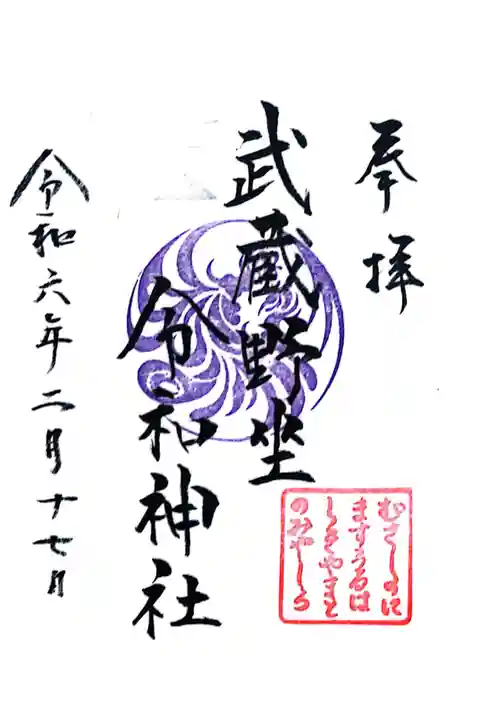 奉拝
武蔵野坐
令和神社
むさしのに
ますうるは
しきやまと
のみやしろ
令和六年二月十七日